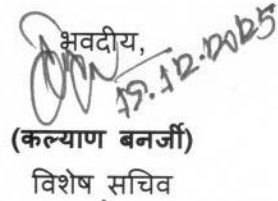 भवदीय,
19.12.2025
(कल्याण बनर्जी)
विशेष सचिव